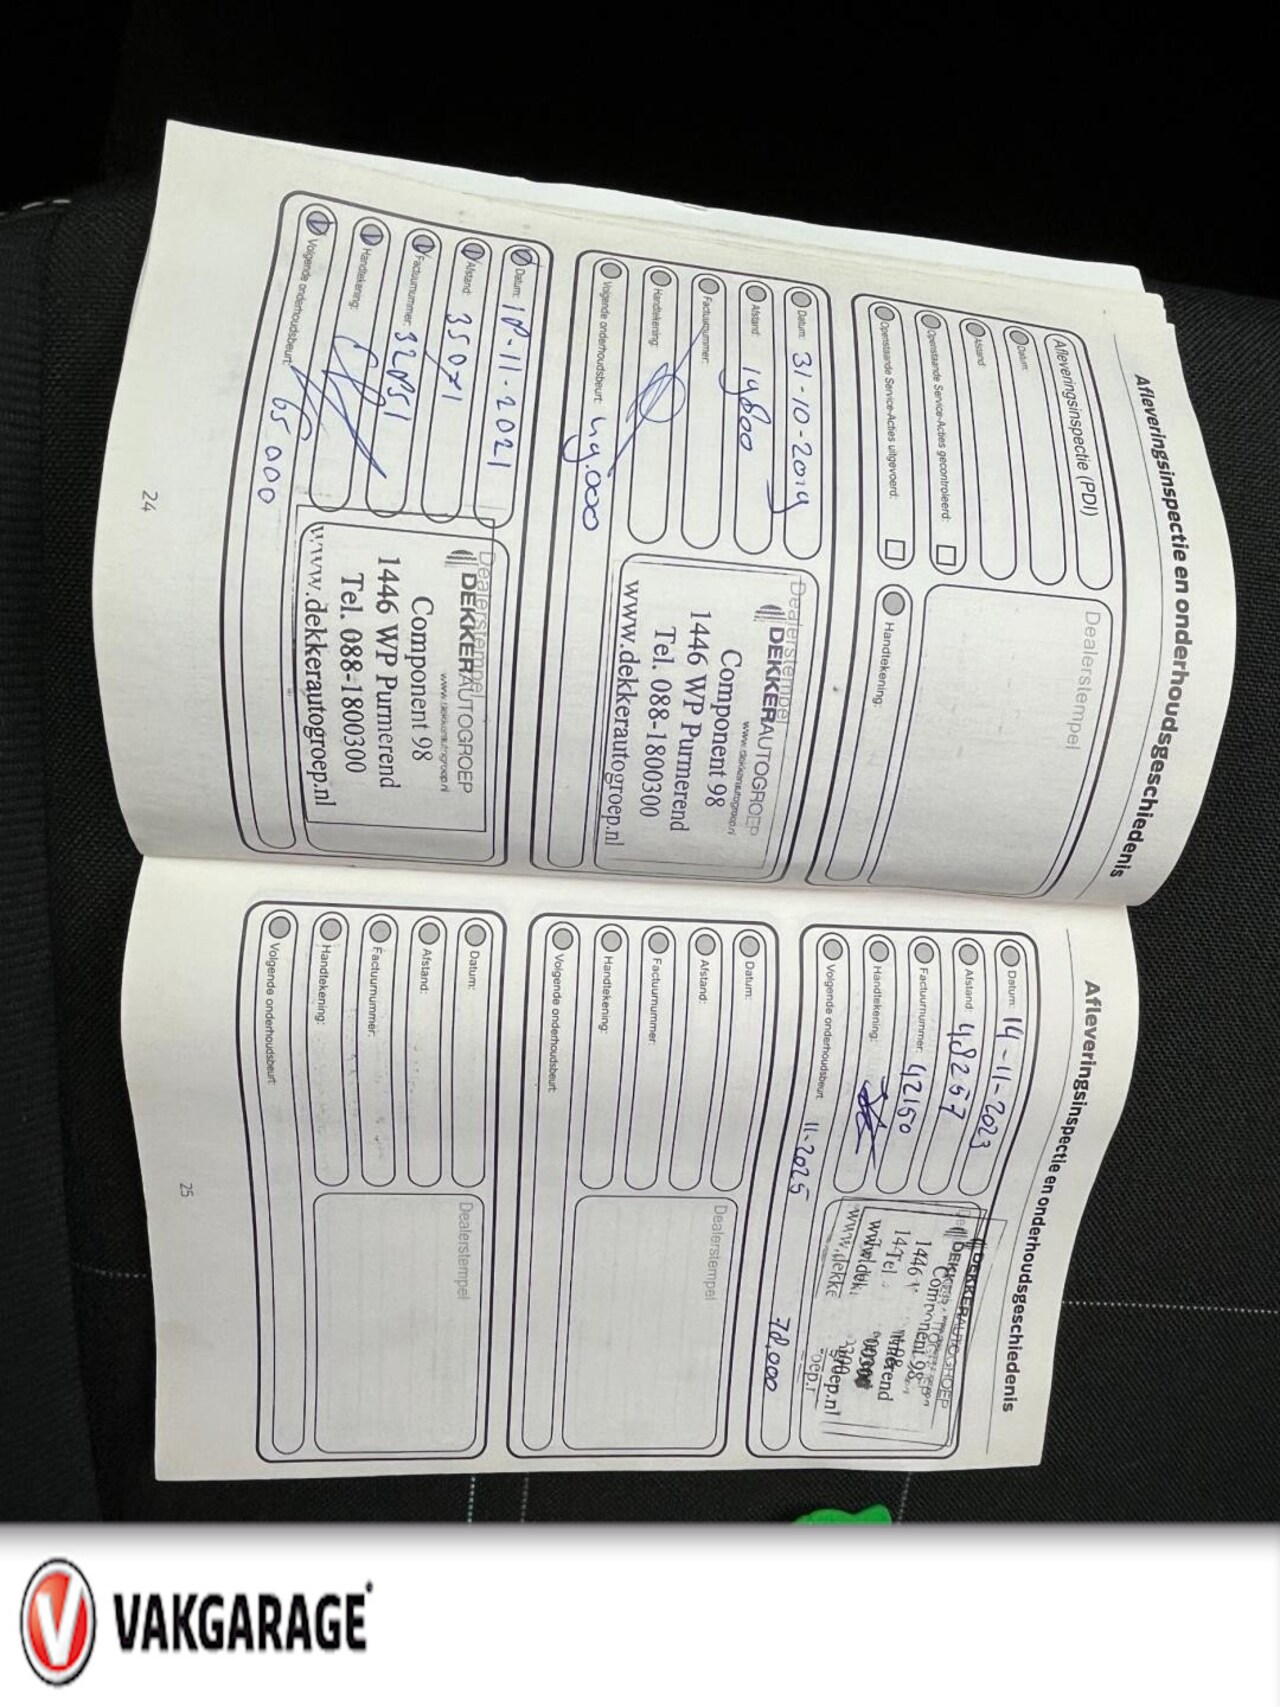 Afleveringsinspectie en onderhoudsgeschiedenis
Afleveringsinspectie (PDI)
Datum:
Afstand:
Openstaande Service-Acties gecontroleerd:
Openstaande Service-Acties uitgevoerd:
Dealerstempel
Handtekening:
Datum: 31-10-2019
Afstand: 19800
Factuurnummer:
Handtekening:
Volgende onderhoudsbeurt: 49.000
Dealerstempel
DEKKERAUTOGROEP
www.dekkerautogroep.nl
Component 98
1446 WP Purmerend
Tel. 088-1800300
www.dekkerautogroep.nl
Datum: 18-11-2021
Afstand: 35071
Factuurnummer: 32851
Handtekening:
Volgende onderhoudsbeurt: 65000
Dealerstempel
DEKKERAUTOGROEP
www.dekkerautogroep.nl
Component 98
1446 WP Purmerend
Tel. 088-1800300
www.dekkerautogroep.nl
24
Afleveringsinspectie en onderhoudsgeschiedenis
Datum: 14-11-2023
Afstand: 48257
Factuurnummer: 42150
Handtekening:
Volgende onderhoudsbeurt: 11-2025 78.000
DEKKERAUTOGROEP
Component 98
Datum:
Afstand:
Factuurnummer:
Handtekening:
Volgende onderhoudsbeurt:
Dealerstempel
Datum:
Afstand:
Factuurnummer:
Handtekening:
Volgende onderhoudsbeurt:
Dealerstempel
25
VAKGARAGE